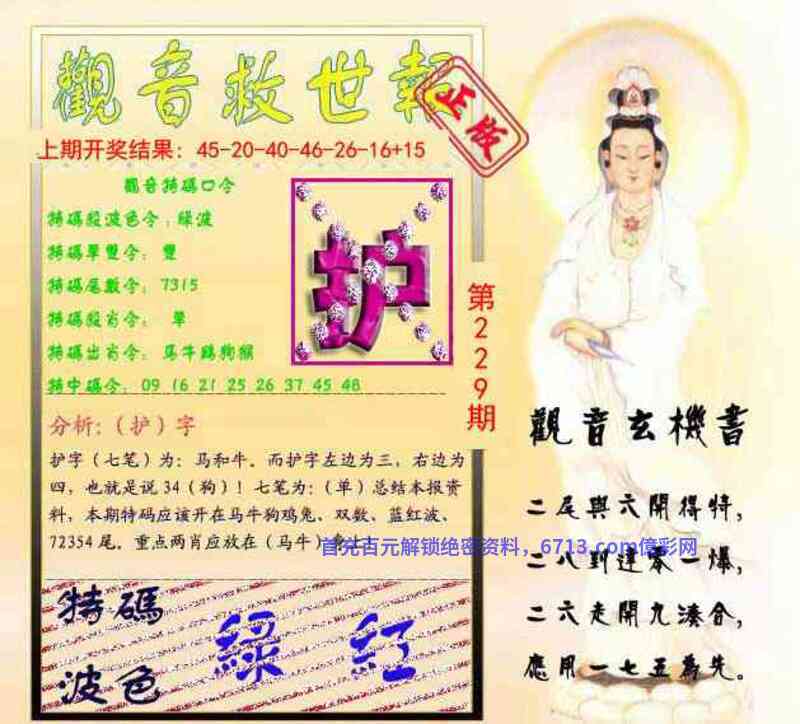 觀音救世報
正版
上期开奖结果：45-20-40-46-26-16+15
觀音特碼口令
特碼殺波色令：綠波
特碼單雙令：雙
特碼尾數令：7315
特碼殺肖令：單
特碼出肖令：马牛鷄狗猴
特中碼令：09 16 21 25 26 37 45 48
护
第229期
分析:（护）字
护字（七笔）为：马和牛。而护字左边为三，右边为
四，也就是说34（狗）！七笔为：（单）总结本报资
料，本期特码应该开在马牛狗鸡兔、双数、蓝红波、
72354尾。重点两肖应放在（马牛）身上！
首充百元解锁绝密资料，6713.com億彩网
特碼
波色
綠 紅
觀音玄機書
二尾與六開得特，
二八到逢零一爆，
二六走開九湊合，
應用一七五為先。